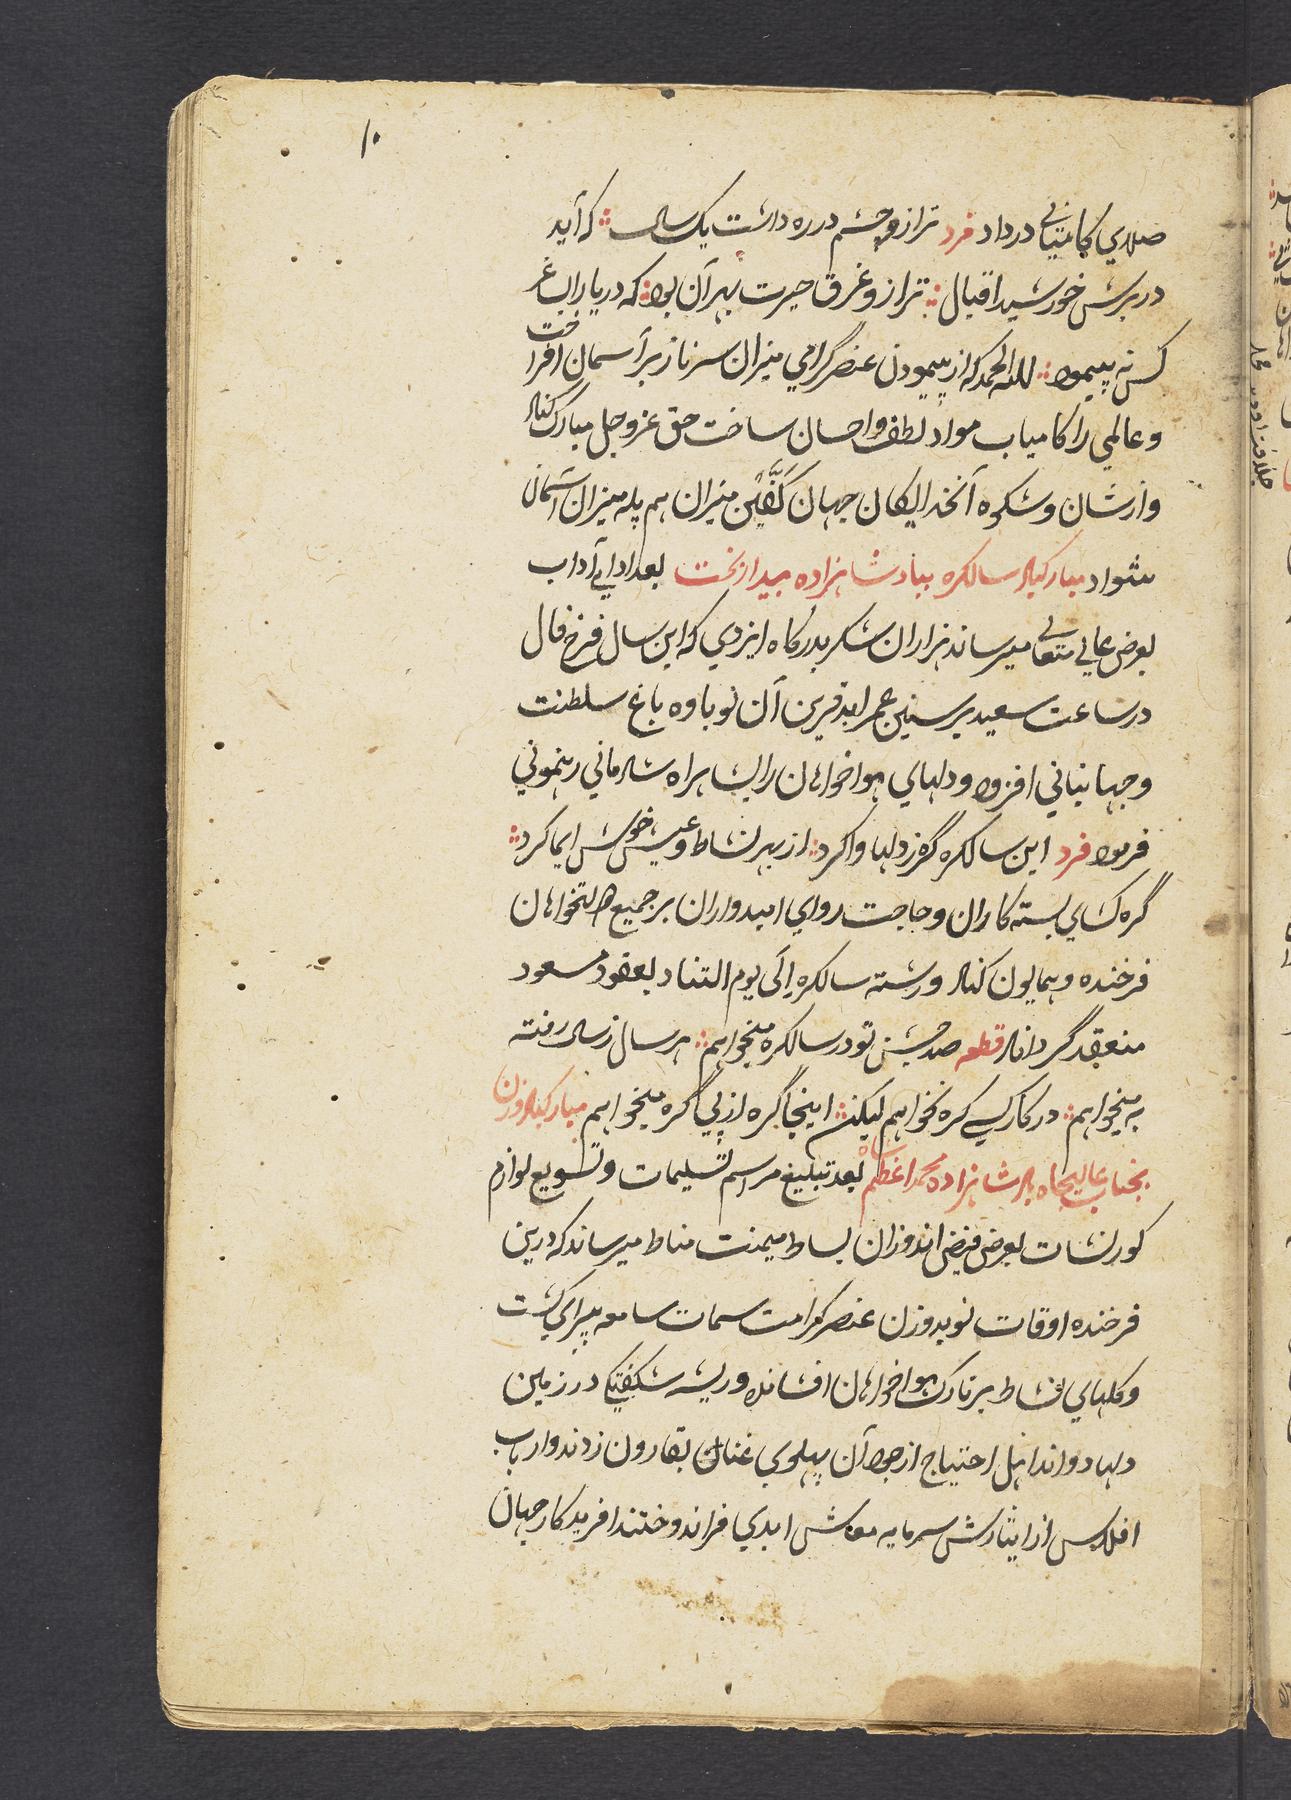 ۱۰
صلای کامیابی درداد فرد ترازو چشم در ره داشت یک سال ؛ که آید
در برش خورشید اقبال ؛ ترازو غرق حیرت بهر آن بود ؛ که دریا را بساغر
کس نه پیمود ؛ لله الحمد که از پیمودن عنصر گرامی میزان سر ناز بر آسمان افراخت
و عالمی را کامیاب مواد لطف و احسان ساخت حق عز و جل مبارک کناد
و از شان و شکوه آنخدایگان جهان کفّتین میزان هم پله میزان آسمان
شواد مبارکباد سالکره بپادشاهزاده بیدار بخت بعد ادای آداب
بعرض عالی متعالی میرساند هزاران شکر بدرگاه ایزدی که این سال فرخ فال
در ساعت سعید بر سنین عمر ابد قرین آن نوباوه باغ سلطنت
و جهانبانی افزود و دلهای هواخواهان را بشاهراه شادمانی رهنمونی
فرمود فرد این سالکره گره ز دلها وا کرد ؛ از بهر نشاط و عیش خوش ایما کرد ؛
گره کشای بسته کاران و حاجت روای امیدواران بر جمیع دولتخواهان
فرخنده و همایون کناد و رشته سالکره الی یوم التناد بعقود مسعود
منعقد گرداناد قطعه صد جشن تو در سالکره میخواهم ؛ هر سال ز سال رفته
به میخواهم ؛ در کار کسی گره نخواهم لیکن ؛ اینجا گره از پی گره میخواهم مبارکباد وزن
بجناب عالیجاه پادشاهزاده محمد اعظم شاه بعد تبلیغ مراسم تسلیمات و تسویع لوازم
کورنشات بعرض فیض اندوزان بساط میمنت مناط میرساند که درین
فرخنده اوقات نوید وزن عنصر کرامت سمات سامعه پیرای گشت
و گلهای نشاط بر تارک هواخواهان افشانده و ریشه شگفتگی در زمین
دلها دواند اهل احتیاج از جود آن پهلوی غنا بقارون زدند و ارباب
افلاس از ایثارش سرمایه معاش ابدی فراندوختند آفریدگار جهان